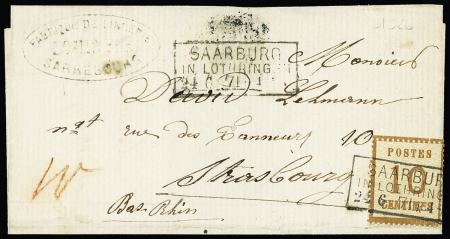 FABRIQUE DE LINGERIE
SARREBOURG
SAARBURG
IN LOTHRINGEN
24 6 71
Monsieur
David Lehmann
ngt rue des Tanneurs 10
Strasbourg
Bas-Rhin
POSTES
10
CENTIMES
SAARBURG
IN LOTHRINGEN